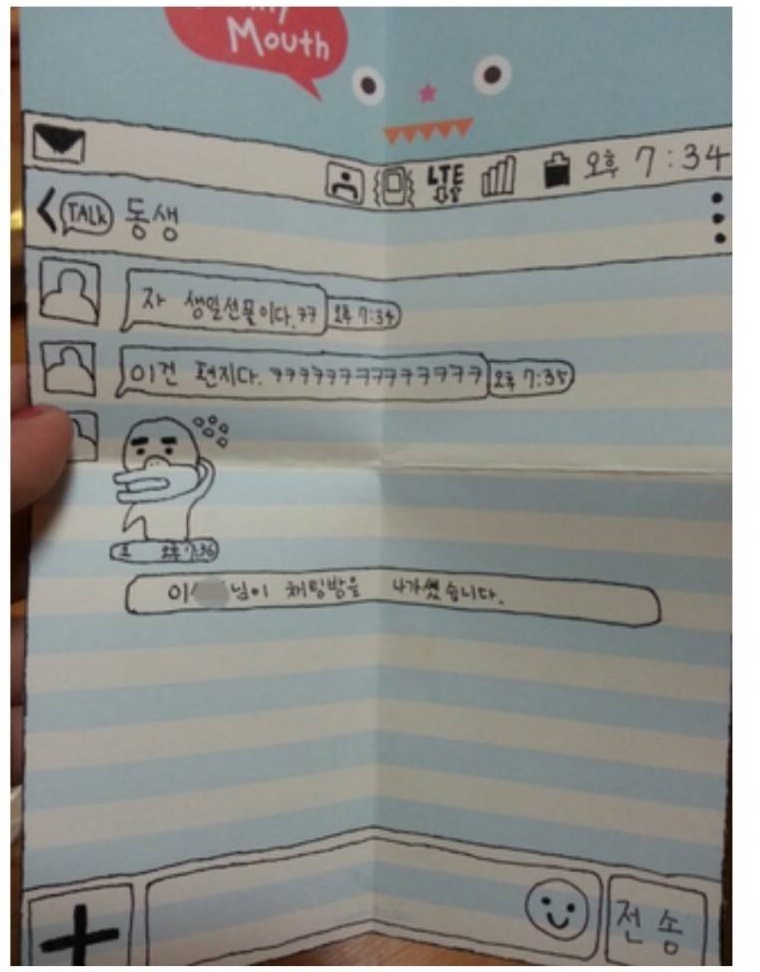 Mouth
LTE 오후 7:34
TALK 동생
자 생일선물이다.ㅋㅋ 오후 7:34
이건 편지다. ㅋㅋㅋㅋㅋㅋㅋㅋㅋㅋㅋㅋㅋㅋㅋ 오후 7:35
오후 7:36
이 님이 채팅방을 나가셨습니다.
전송